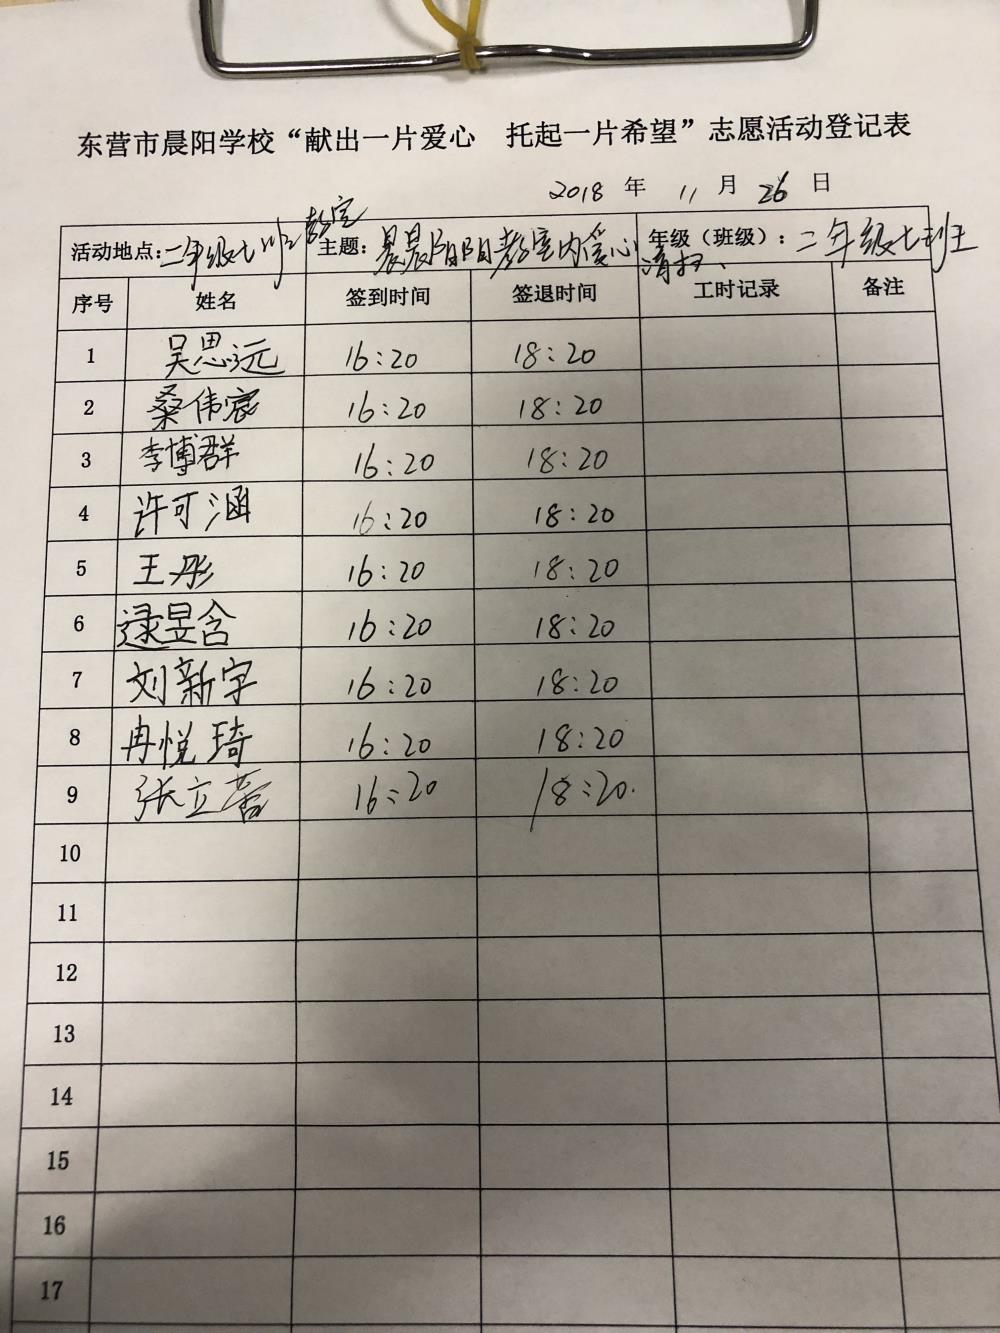 东营市晨阳学校“献出一片爱心 托起一片希望”志愿活动登记表
2018 年 11 月 26 日
活动地点:二年级七班教室 主题:晨晨阳阳教室内爱心清扫、 年级(班级):二年级七班
序号 姓名 签到时间 签退时间 工时记录 备注
1 吴思远 16:20 18:20
2 桑伟宸 16:20 18:20
3 李博群 16:20 18:20
4 许可涵 16:20 18:20
5 王彤 16:20 18:20
6 逯昱含 16:20 18:20
7 刘新宇 16:20 18:20
8 冉悦琦 16:20 18:20
9 张立 16:20 18:20.
10
11
12
13
14
15
16
17